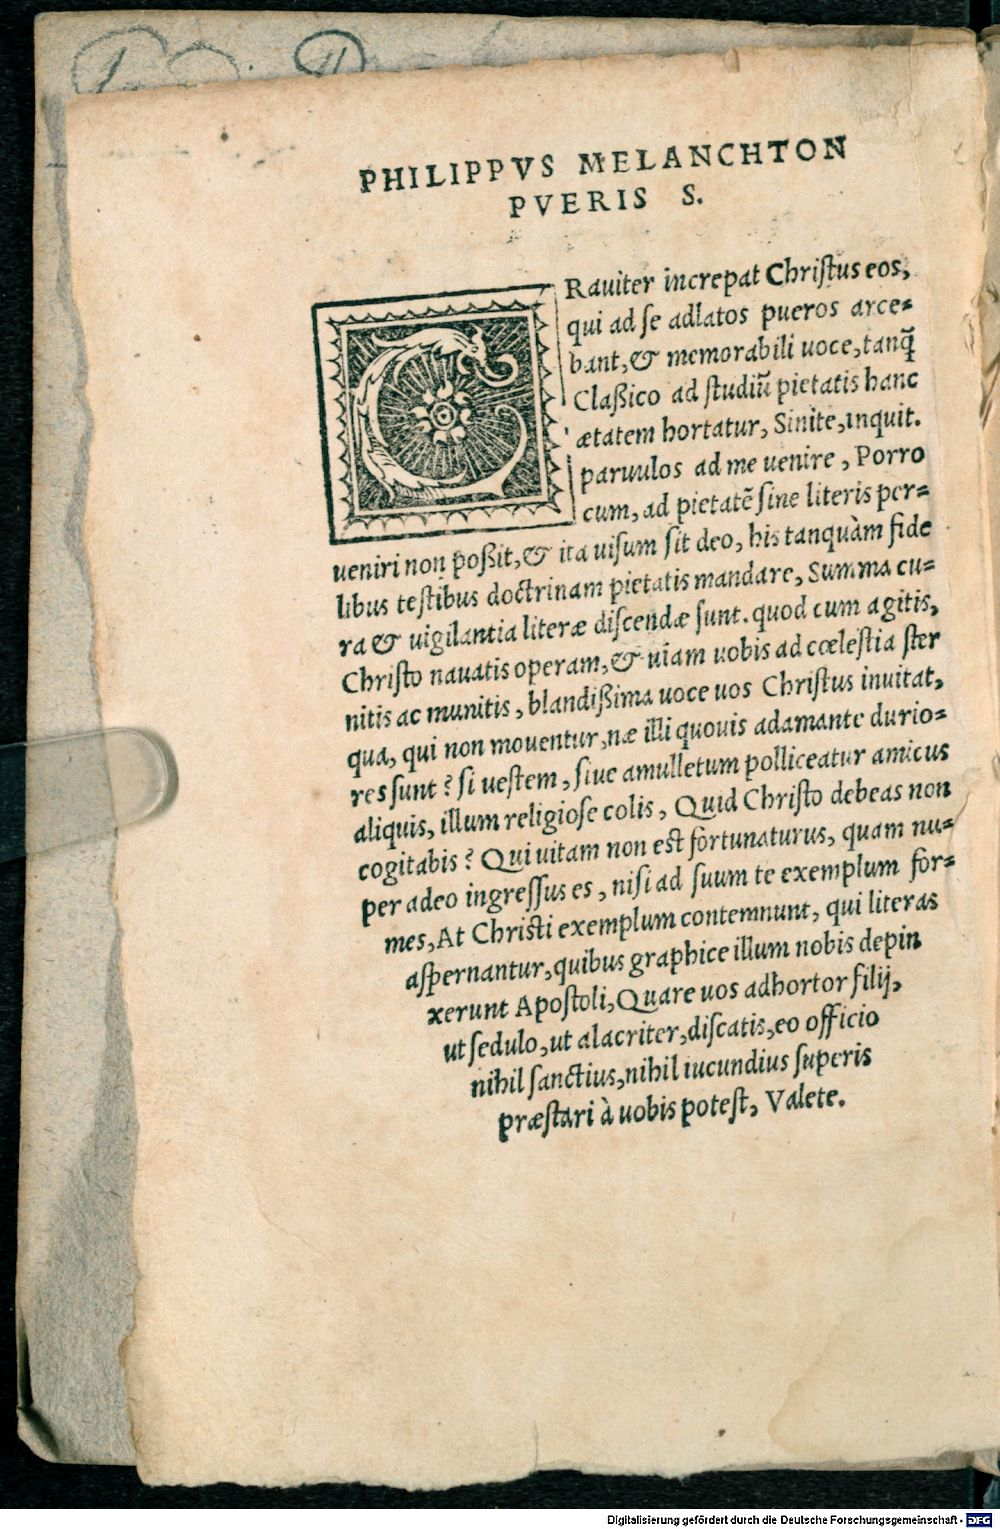 PHILIPPVS MELANCHTON
PVERIS S.
GRauiter increpat Christus eos,
qui ad se adlatos pueros arce-
bant, & memorabili uoce, tanq̃
Claßico ad studiũ pietatis hanc
ætatem hortatur, Sinite, inquit.
paruulos ad me uenire, Porro
cum, ad pietatẽ sine literis per-
ueniri non poßit, & ita uisum sit deo, his tanquàm fide
libus testibus doctrinam pietatis mandare, Summa cu-
ra & uigilantia literæ discendæ sunt. quod cum agitis,
Christo nauatis operam, & uiam uobis ad cœlestia ster
nitis ac munitis, blandißima uoce uos Christus inuitat,
qua, qui non mouentur, næ illi quouis adamante durio-
res sunt? si uestem, siue amulletum polliceatur amicus
aliquis, illum religiose colis, Quid Christo debeas non
cogitabis? Qui uitam non est fortunaturus, quam nu-
per adeo ingressus es, nisi ad suum te exemplum for-
mes, At Christi exemplum contemnunt, qui literas
aspernantur, quibus graphice illum nobis depin
xerunt Apostoli, Quare uos adhortor filij,
ut sedulo, ut alacriter, discatis, eo officio
nihil sanctius, nihil iucundius superis
præstari à uobis potest, Valete.
Digitalisierung gefördert durch die Deutsche Forschungsgemeinschaft - DFG